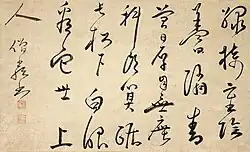 綠樹重陰
蓋四鄰青
苔日厚自無塵
科頭箕踞
長松下白眼
看他世上
人